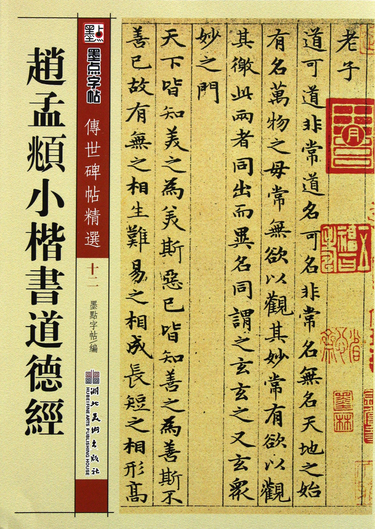 趙孟頫小楷書道德經
墨点
墨点字帖
傳世碑帖精選
十二
墨點字帖/編
湖北美術出版社
HUBEI FINE ARTS PUBLISHING HOUSE
老子
道可道非常道名可名非常名無名天地之始
有名萬物之母常無欲以觀其妙常有欲以觀
其徼此兩者同出而異名同謂之玄玄之又玄衆
妙之門
天下皆知美之為美斯惡已皆知善之為善斯不
善已故有無之相生難易之相成長短之相形高